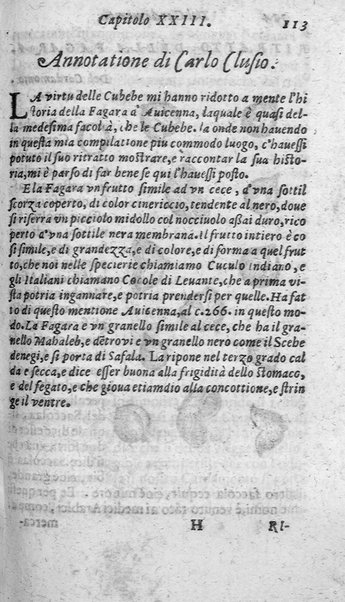 Capitolo XXIII. 113
Annotatione di Carlo Clusio.
LA virtu delle Cubebe mi hanno ridotto a mente l'hi
storia della Fagara d'Auicenna, laquale è quasi del-
la medesima facoltà, che le Cubebe. la onde non hauendo
in questa mia compilatione piu commodo luogo, c'hauessi
potuto il suo ritratto mostrare, e raccontar la sua histo-
ria, mi è parso di far bene se qui l'hauessi posto.
E la Fagara vn frutto simile ad vn cece, d'vna sottil
scorza coperto, di color cinericcio, tendente al nero, doue
si riserra vn picciolo midollo col nocciuolo aßai duro, rico
perto d'vna sottile nera membrana. il frutto intiero è co
si simile, e di grandezza, e di colore, e di forma a quel frut
to, che noi nelle specierie chiamiamo Cuculo indiano, e
gli Italiani chiamano Cocole di Leuante, che a prima vi-
sta potria ingannare, e potria prendersi per quelle. Ha fat
to di questo mentione Auicenna, al c.266. in questo mo-
do. La Fagara è vn granello simile al cece, che ha il gra-
nello Mahaleb, e dētroui è vn granello nero come il Scebe
denegi, e si porta di Safala. La ripone nel terzo grado cal
da e secca, e dice esser buona alla frigidità dello stomaco,
e del fegato, e che gioua etiamdio alla concottione, e strin
ge il ventre.
H RI-